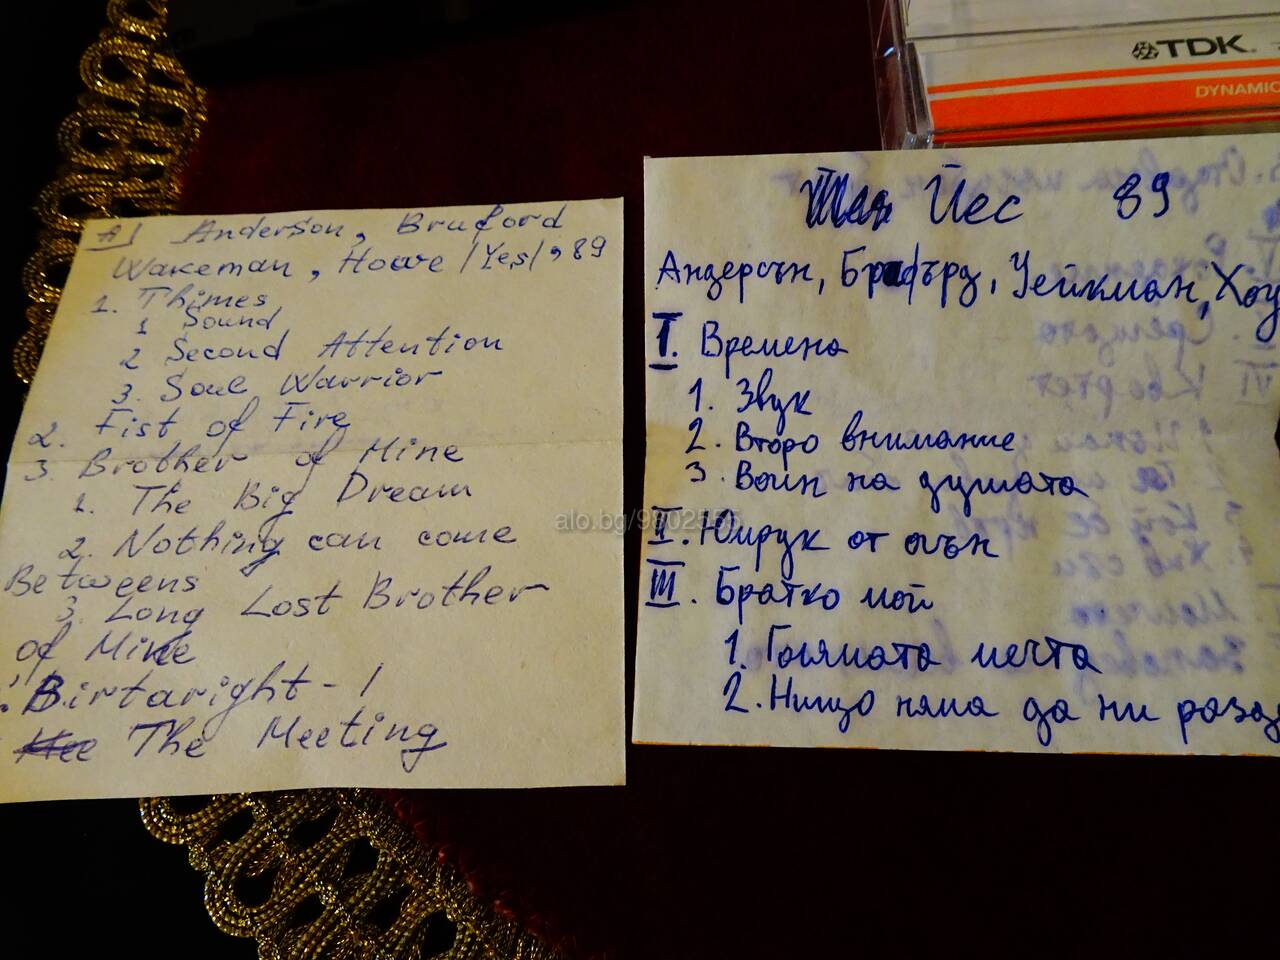 TDK
DYNAMIC
A| Anderson, Bruford
Wakeman, Howe |Yes|, 89
1. Thimes
1 Sound
2 Second Attention
3. Soul Warrior
2. Fist of Fire
3. Brother of Mine
1. The Big Dream
2. Nothing can come
Betweens
3. Long Lost Brother
of Mine
. Birtaright - 1
The Meeting
Йес 89
Андерсън, Брафърд, Уейкман, Хоу
I. Времена
1. Звук
2. Второ внимание
3. Воин на душата
II. Юмрук от огън
III. Братко мой
1. Голямата мечта
2. Нищо няма да ни разд
alo.bg/9802555